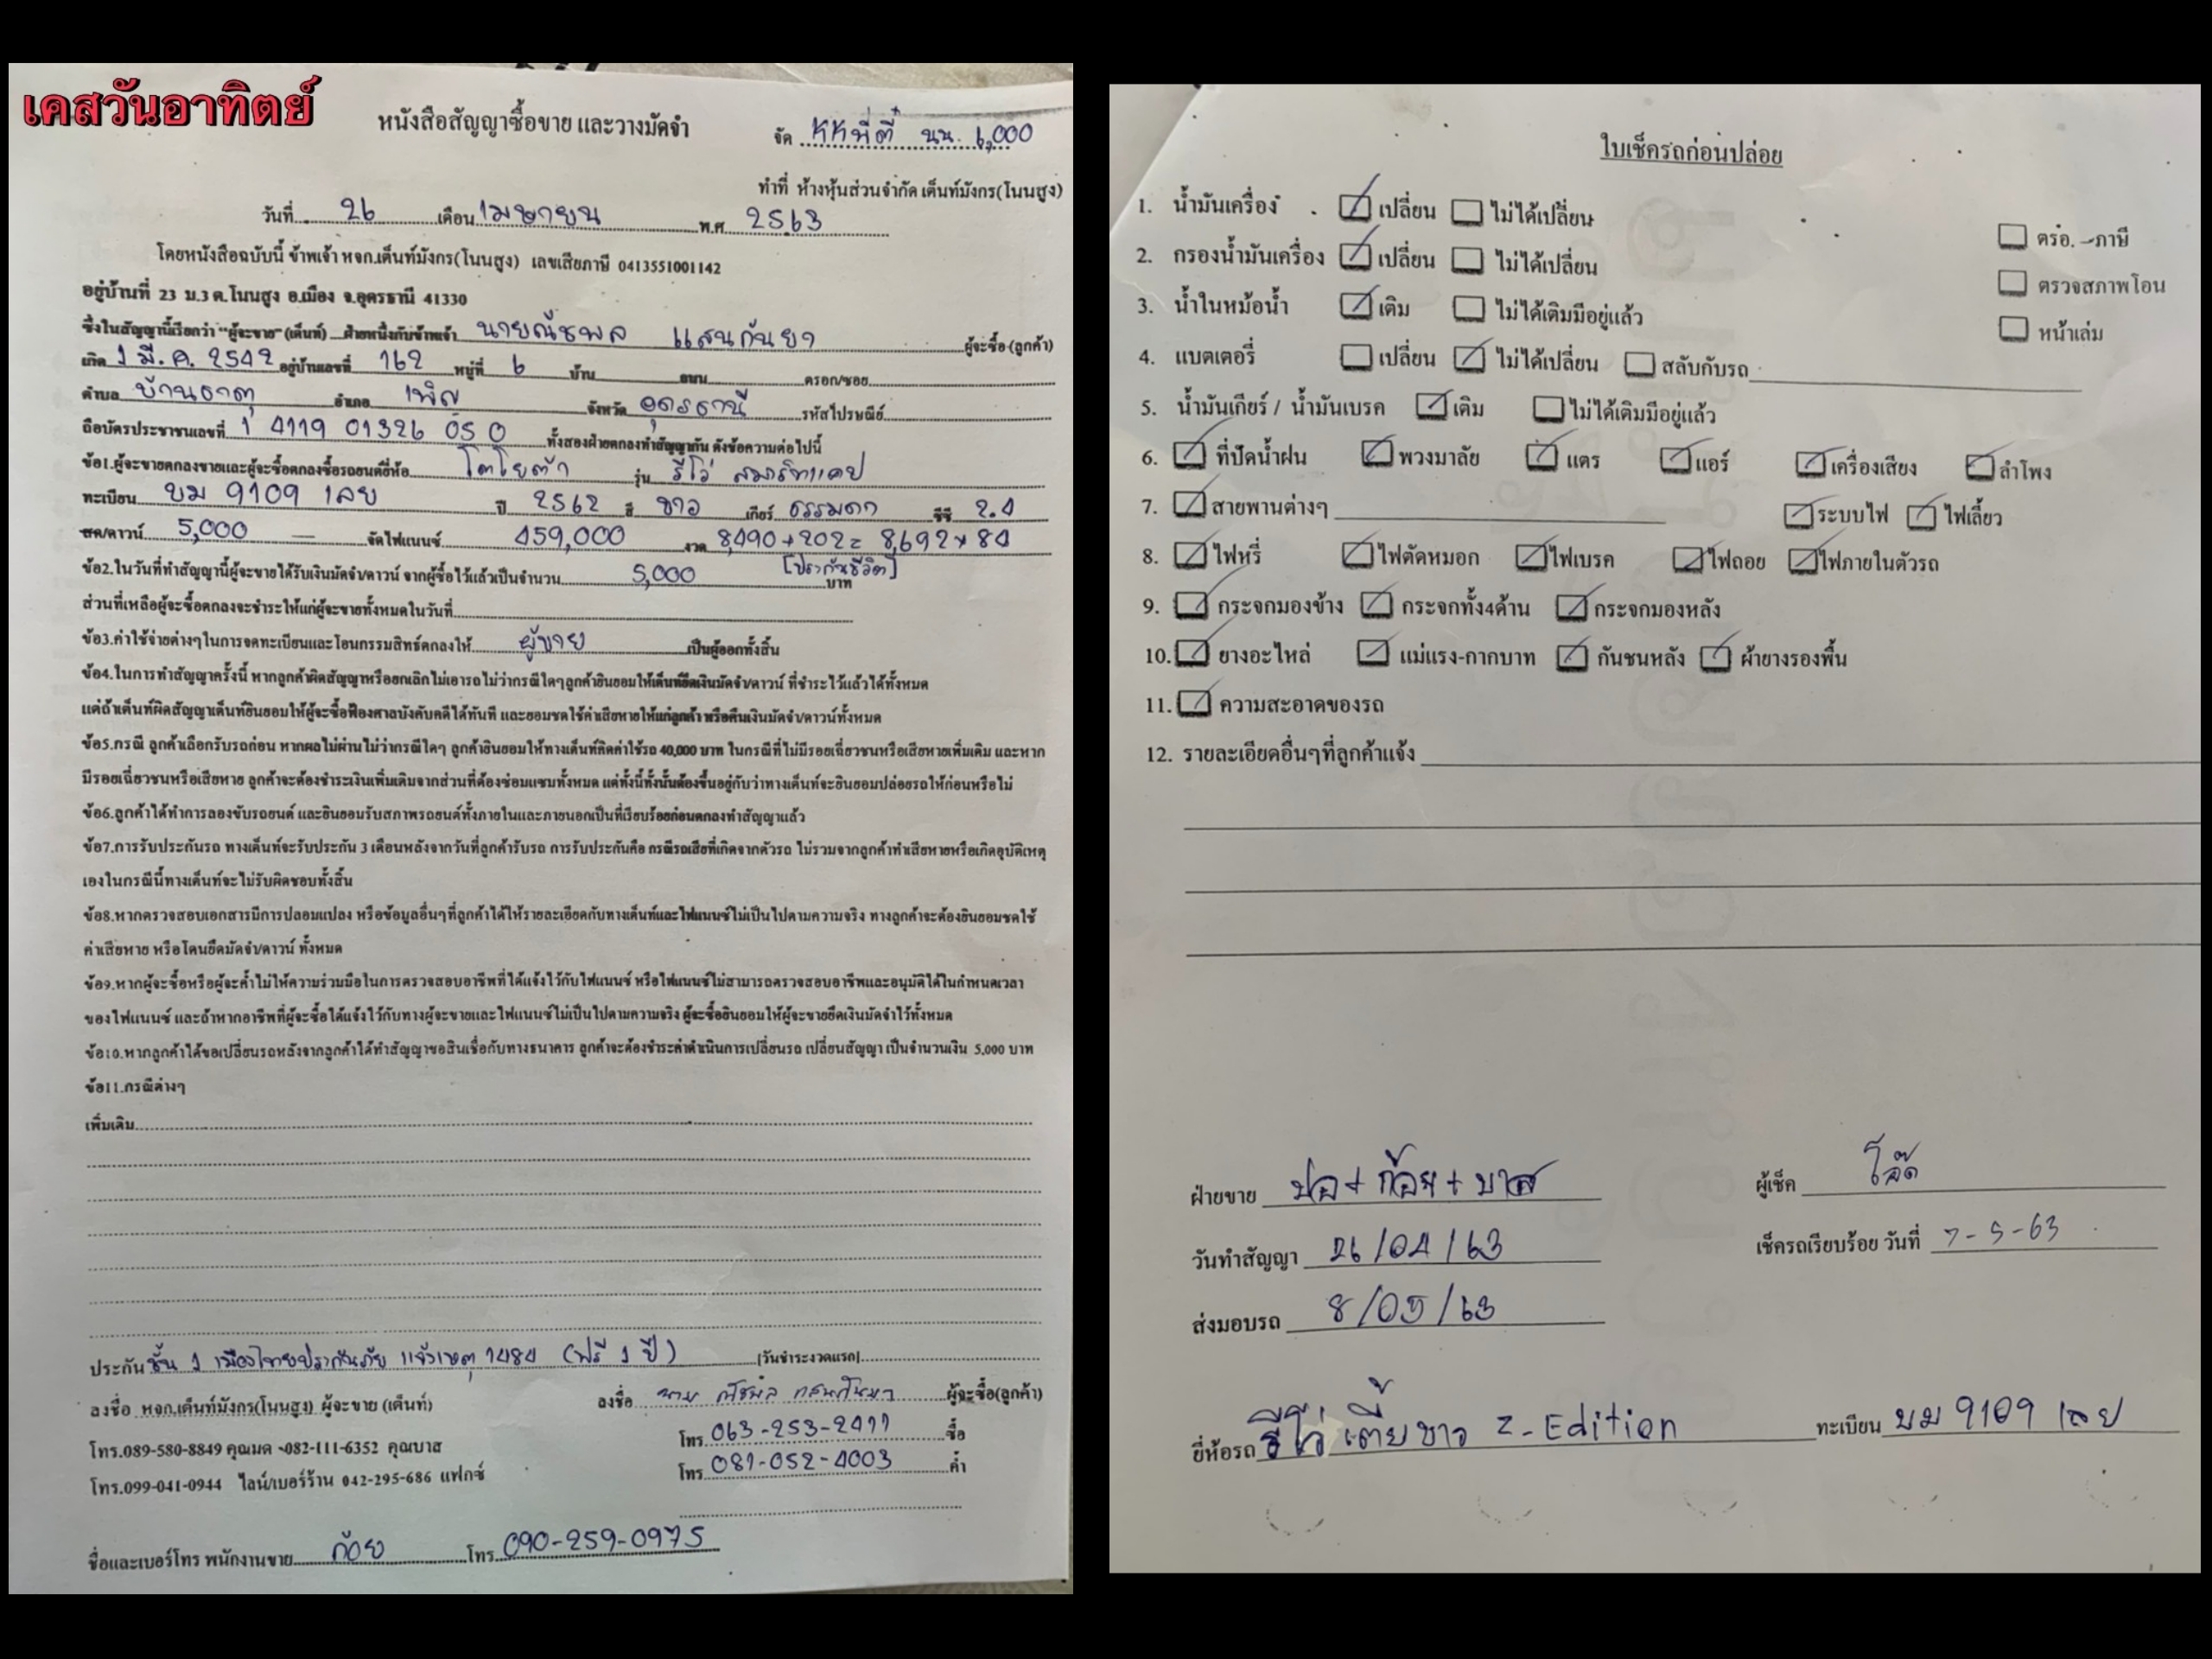 เคสวันอาทิตย์
หนังสือสัญญาซื้อขาย และวางมัดจำ
จัด KKที่ดี นน. 6,000
ทำที่ ห้างหุ้นส่วนจำกัด เต็นท์มังกร(โนนสูง)
วันที่ 26 เดือน เมษายน พ.ศ 2563
โดยหนังสือฉบับนี้ ข้าพเจ้า หจก.เต็นท์มังกร(โนนสูง) เลขเสียภาษี 0413551001142
อยู่บ้านที่ 23 ม.3 ต.โนนสูง อ.เมือง จ.อุดรธานี 41330
ซึ่งในสัญญานี้เรียกว่า "ผู้จะขาย" (เต็นท์) ฝ่ายหนึ่งกับข้าพเจ้า นายณัชพล แสนกันยา ผู้จะซื้อ (ลูกค้า)
เกิด 1 มี.ค. 2542 อยู่บ้านเลขที่ 162 หมู่ที่ 6 บ้าน ถนน ตรอก/ซอย
ตำบล บ้านธาตุ อำเภอ เพ็ญ จังหวัด อุดรธานี รหัสไปรษณีย์
ถือบัตรประชาชนเลขที่ 1 4119 01326 05 0 ทั้งสองฝ่ายตกลงทำสัญญากัน ดังข้อความต่อไปนี้
ข้อ1.ผู้จะขายตกลงขายและผู้จะซื้อตกลงซื้อรถยนต์ยี่ห้อ โตโยต้า รุ่น รีโว่ สมาร์ทแคป
ทะเบียน บม 9109 เลย ปี 2562 สี ขาว เกียร์ ธรรมดา ซีซี 2.4
สด/ดาวน์ 5,000 จัดไฟแนนซ์ 459,000 งวด 8,490+202= 8,692x84
ข้อ2.ในวันที่ทำสัญญานี้ผู้จะขายได้รับเงินมัดจำ/ดาวน์ จากผู้ซื้อไว้แล้วเป็นจำนวน 5,000 บาท [ประกันชีวิต]
ส่วนที่เหลือผู้จะซื้อตกลงจะชำระให้แก่ผู้จะขายทั้งหมดในวันที่
ข้อ3.ค่าใช้จ่ายต่างๆในการจดทะเบียนและโอนกรรมสิทธ์ตกลงให้ ผู้ขาย เป็นผู้ออกทั้งสิ้น
ข้อ4.ในการทำสัญญาครั้งนี้ หากลูกค้าผิดสัญญาหรือยกเลิกไม่เอารถไม่ว่ากรณีใดๆลูกค้ายินยอมให้เต็นท์ยึดเงินมัดจำ/ดาวน์ ที่ชำระไว้แล้วได้ทั้งหมด
แต่ถ้าเต็นท์ผิดสัญญาเต็นท์ยินยอมให้ผู้จะซื้อฟ้องศาลบังคับคดีได้ทันที และยอมชดใช้ค่าเสียหายให้แก่ลูกค้า หรือคืนเงินมัดจำ/ดาวน์ทั้งหมด
ข้อ5.กรณี ลูกค้าเลือกรับรถก่อน หากผลไม่ผ่านไม่ว่ากรณีใดๆ ลูกค้ายินยอมให้ทางเต็นท์คิดค่าใช้รถ 40,000 บาท ในกรณีที่ไม่มีรอยเฉี่ยวชนหรือเสียหายเพิ่มเติม และหาก
มีรอยเฉี่ยวชนหรือเสียหาย ลูกค้าจะต้องชำระเงินเพิ่มเติมจากส่วนที่ต้องซ่อมแซมทั้งหมด แต่ทั้งนี้ทั้งนั้นต้องขึ้นอยู่กับว่าทางเต็นท์จะยินยอมปล่อยรถให้ก่อนหรือไม่
ข้อ6.ลูกค้าได้ทำการลองขับรถยนต์ และยินยอมรับสภาพรถยนต์ทั้งภายในและภายนอกเป็นที่เรียบร้อยก่อนตกลงทำสัญญาแล้ว
ข้อ7.การรับประกันรถ ทางเต็นท์จะรับประกัน 3 เดือนหลังจากวันที่ลูกค้ารับรถ การรับประกันคือ กรณีรถเสียที่เกิดจากตัวรถ ไม่รวมจากลูกค้าทำเสียหายหรือเกิดอุบัติเหตุ
เองในกรณีนี้ทางเต็นท์จะไม่รับผิดชอบทั้งสิ้น
ข้อ8.หากตรวจสอบเอกสารมีการปลอมแปลง หรือข้อมูลอื่นๆที่ลูกค้าได้ให้รายละเอียดกับทางเต็นท์และไฟแนนซ์ไม่เป็นไปตามความจริง ทางลูกค้าจะต้องยินยอมชดใช้
ค่าเสียหาย หรือโดนยึดมัดจำ/ดาวน์ ทั้งหมด
ข้อ9.หากผู้จะซื้อหรือผู้จะค้ำไม่ให้ความร่วมมือในการตรวจสอบอาชีพที่ได้แจ้งไว้กับไฟแนนซ์ หรือไฟแนนซ์ไม่สามารถตรวจสอบอาชีพและอนุมัติได้ในกำหนดเวลา
ของไฟแนนซ์ และถ้าหากอาชีพที่ผู้จะซื้อได้แจ้งไว้กับทางผู้จะขายและไฟแนนซ์ไม่เป็นไปตามความจริง ผู้จะซื้อยินยอมให้ผู้จะขายยึดเงินมัดจำไว้ทั้งหมด
ข้อ10.หากลูกค้าได้ขอเปลี่ยนรถหลังจากลูกค้าได้ทำสัญญาขอสินเชื่อกับทางธนาคาร ลูกค้าจะต้องชำระค่าดำเนินการเปลี่ยนรถ เปลี่ยนสัญญา เป็นจำนวนเงิน 5,000 บาท
ข้อ11.กรณีต่างๆ
เพิ่มเติม
ประกัน ชั้น 1 เมืองไทยประกันภัย แจ้งเหตุ 1484 (ฟรี 1 ปี) [วันชำระงวดแรก]
ลงชื่อ หจก.เต็นท์มังกร(โนนสูง) ผู้จะขาย (เต็นท์) ลงชื่อ นาย ณัชพล แสนกันยา ผู้จะซื้อ(ลูกค้า)
โทร.089-580-8849 คุณมด -082-111-6352 คุณบาส โทร 063-253-2411 ซื้อ
โทร.099-041-0944 ไลน์/เบอร์ร้าน 042-295-686 แฟกซ์ โทร 081-052-4003 ค้ำ
ชื่อและเบอร์โทร พนักงานขาย ก้อย โทร 090-259-0975
ใบเช็ครถก่อนปล่อย
1. น้ำมันเครื่อง เปลี่ยน ไม่ได้เปลี่ยน
2. กรองน้ำมันเครื่อง เปลี่ยน ไม่ได้เปลี่ยน
3. น้ำในหม้อน้ำ เติม ไม่ได้เติมมีอยู่แล้ว
4. แบตเตอรี่ เปลี่ยน ไม่ได้เปลี่ยน สลับกับรถ
ตรอ.-ภาษี
ตรวจสภาพโอน
หน้าเล่ม
5. น้ำมันเกียร์ / น้ำมันเบรค เติม ไม่ได้เติมมีอยู่แล้ว
6. ที่ปัดน้ำฝน พวงมาลัย แตร แอร์ เครื่องเสียง ลำโพง
7. สายพานต่างๆ ระบบไฟ ไฟเลี้ยว
8. ไฟหรี่ ไฟตัดหมอก ไฟเบรค ไฟถอย ไฟภายในตัวรถ
9. กระจกมองข้าง กระจกทั้ง4ด้าน กระจกมองหลัง
10. ยางอะไหล่ แม่แรง-กากบาท กันชนหลัง ผ้ายางรองพื้น
11. ความสะอาดของรถ
12. รายละเอียดอื่นๆที่ลูกค้าแจ้ง
ฝ่ายขาย ปอ+ก้อย+บาส ผู้เช็ค โอ๊ต
วันทำสัญญา 26/04/63 เช็ครถเรียบร้อย วันที่ 7-5-63
ส่งมอบรถ 8/05/63
ยี่ห้อรถ รีโว่ เตี้ย ขาว Z-Edition ทะเบียน บม 9109 เลย